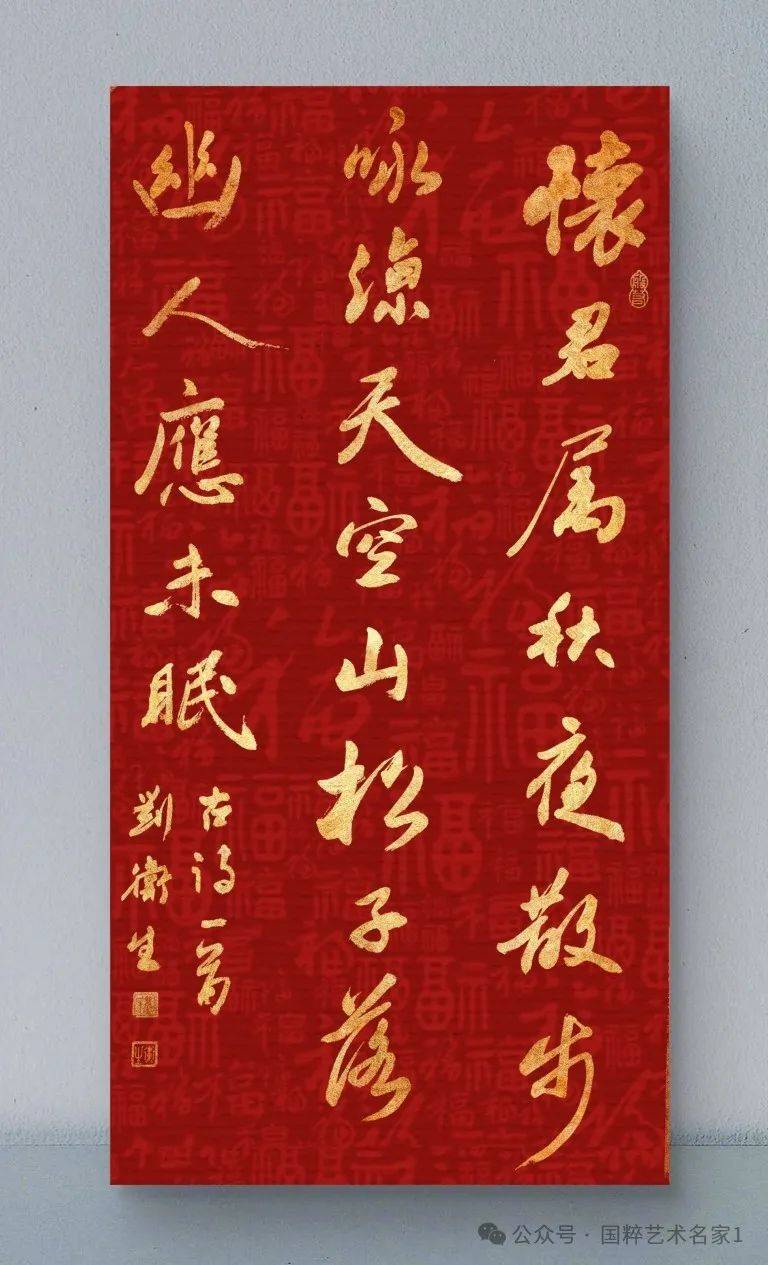 懷君属秋夜散步
咏凉天空山松子落
幽人應未眠
古诗一首
劉衛生
公众号 · 国粹艺术名家1